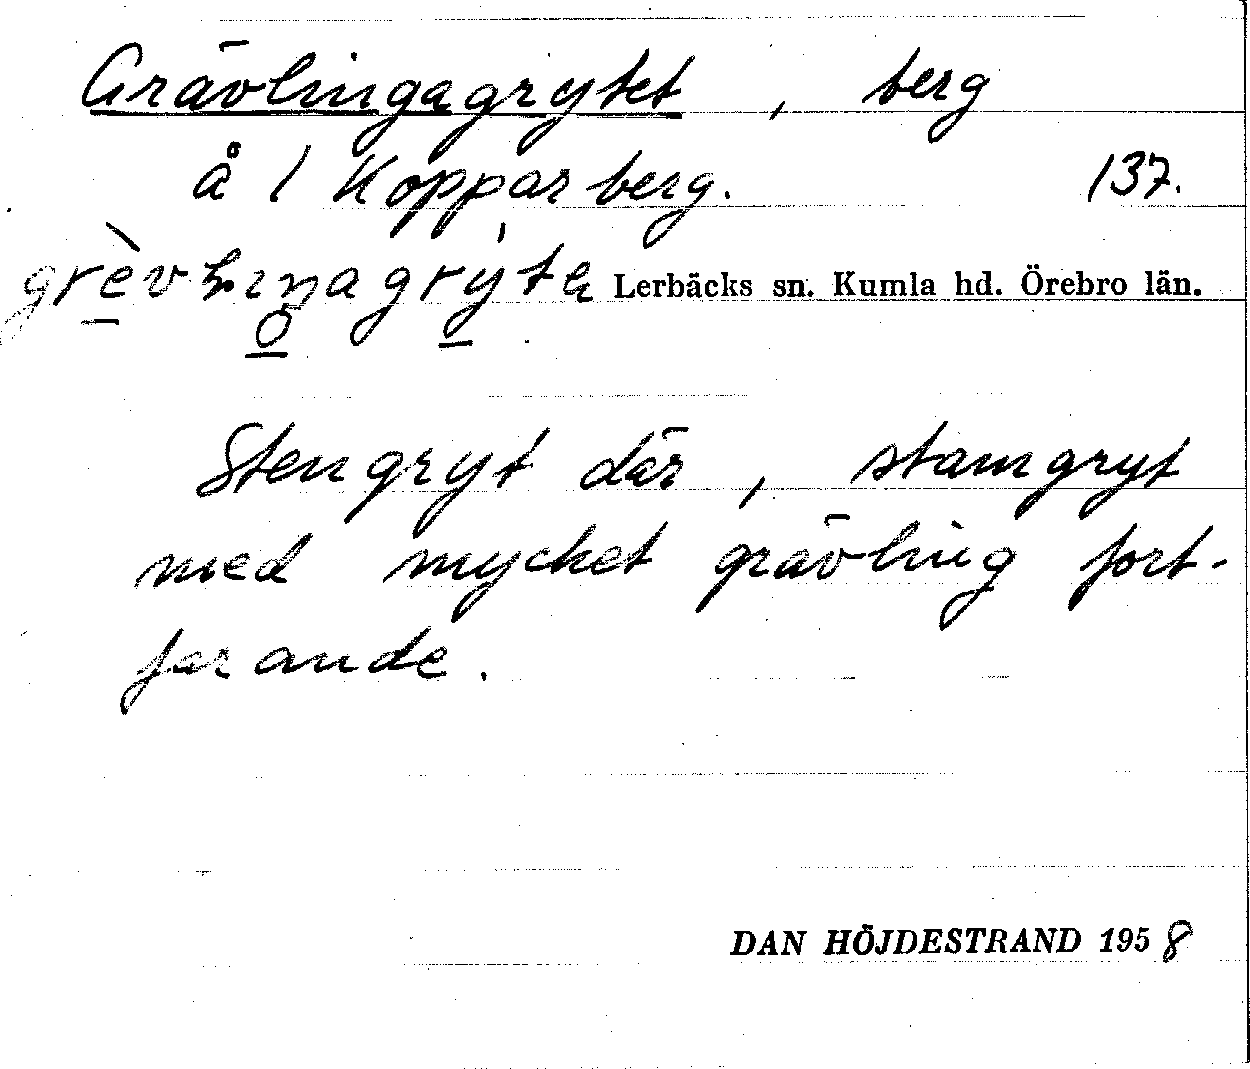 Grävlingagrytet, berg
å 1 Kopparberg. 137.
Lerbäcks sn. Kumla hd. Örebro län.
Stengryt där, stamgryt
med mycket grävling fort-
farande.
DAN HÖJDESTRAND 1958